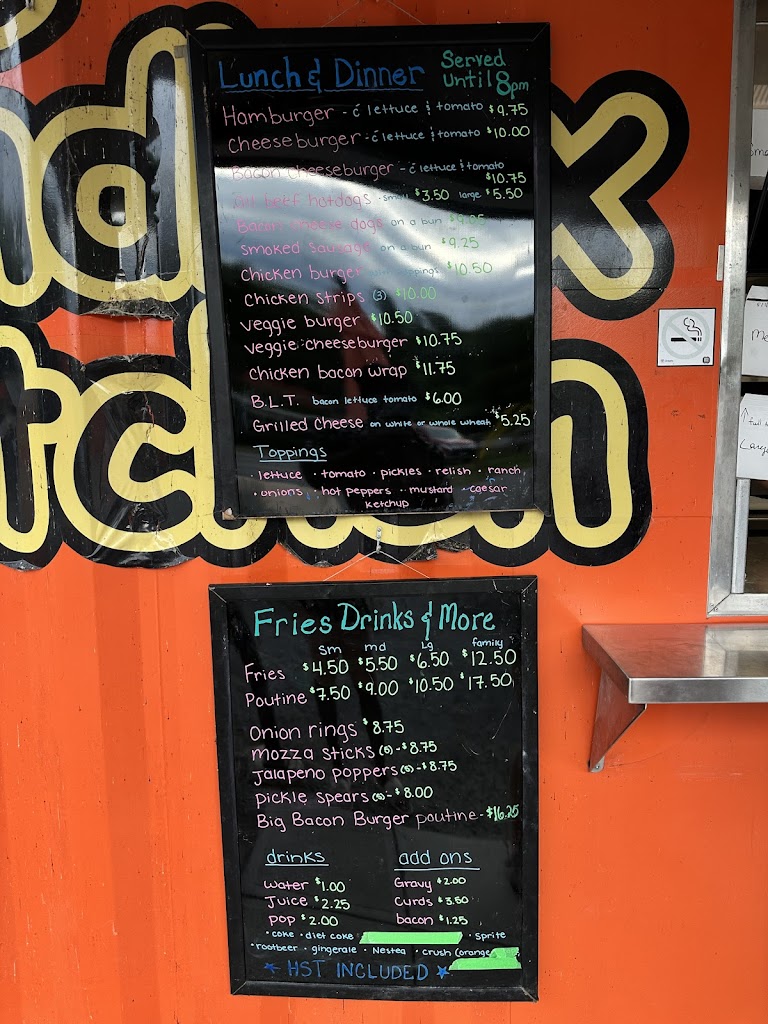 Lunch & Dinner Served until 8pm
Hamburger - c̄ lettuce & tomato $9.75
Cheeseburger - c̄ lettuce & tomato $10.00
Bacon Cheeseburger - c̄ lettuce & tomato
$10.75
All beef hotdogs - small $3.50 large $5.50
Bacon cheese dogs on a bun
smoked sausage on a bun $9.25
chicken burger toppings $10.50
chicken strips (3) $10.00
veggie burger $10.50
veggie cheeseburger $10.75
chicken bacon wrap $11.75
B.L.T. bacon lettuce tomato $6.00
Grilled cheese on white or whole wheat $5.25
Toppings
• lettuce • tomato • pickles • relish • ranch
• onions • hot peppers • mustard • caesar
ketchup
Fries Drinks & More
Sm md Lg family
Fries $4.50 $5.50 $6.50 $12.50
Poutine $7.50 $9.00 $10.50 $17.50
Onion rings $8.75
mozza sticks - $8.75
jalapeno poppers - $8.75
pickle spears - $8.00
Big Bacon Burger poutine - $16.25
drinks add ons
water $1.00 Gravy $2.00
Juice $2.25 Curds $3.50
pop $2.00 bacon $1.25
• coke • diet coke • sprite
• rootbeer • gingerale • Nestea • crush (orange
HST INCLUDED